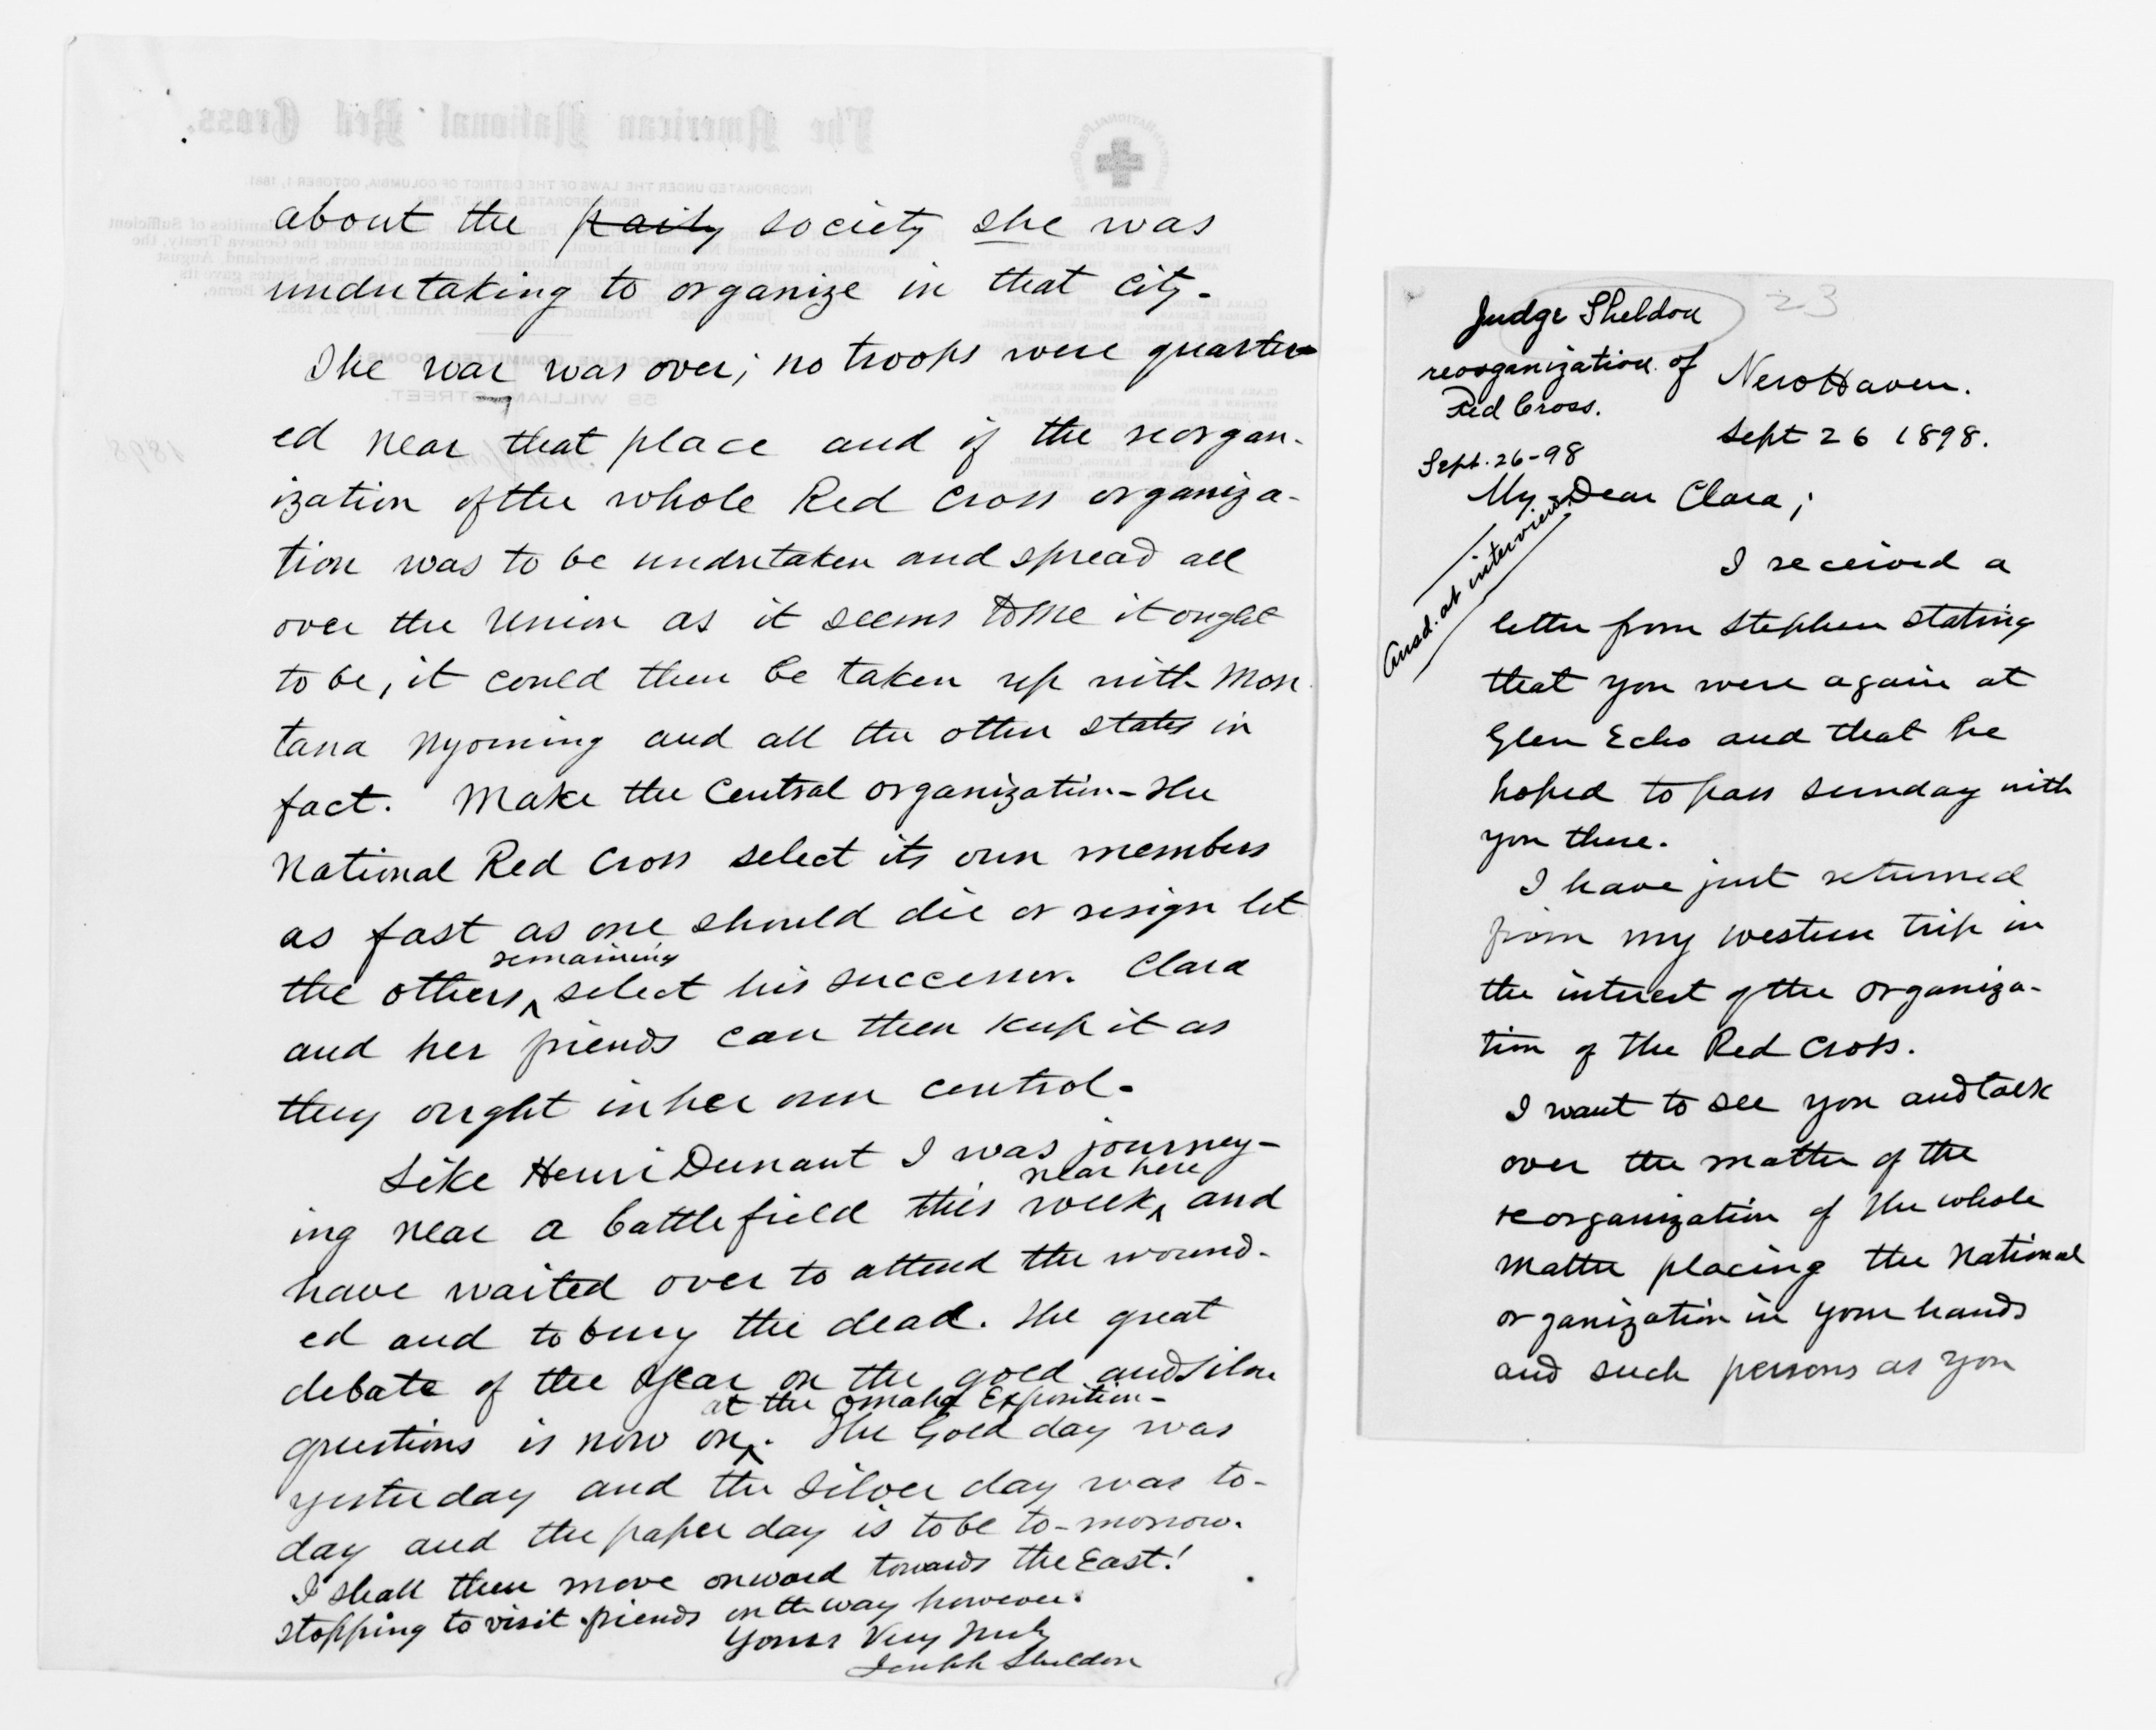 about the party society she was
undertaking to organize in that city-
The war was over; no troops were quarter-
ed near that place and if the reorgan-
ization of the whole Red Cross organiza-
tion was to be undertaken and spread all
over the Union as it seems to me it ought
to be, it could then be taken up with Mon
tana Wyoming and all the other states in
fact. Make the Central organization - the
National Red Cross select its own members
as fast as one should die or resign let
remaining
the others ^ select his successor. Clara
and her friends can then keep it as
they ought in her own control-
Like Henri Dunant I was journey-
near here
ing near a battlefield this week ^ and
have waited over to attend the wound-
ed and to bury the dead. The great
debate of the year on the gold and silver
at the Omaha Exposition-
questions is now on ^. The Gold day was
yesterday and the Silver day was to-
day and the paper day is to be to-morrow.
I shall then move onward towards the East!
stopping to visit friends on the way however.
Yours Very Truly
Joseph Sheldon
The American National Red Cross.
INCORPORATED UNDER THE LAWS OF THE DISTRICT OF COLUMBIA, OCTOBER 1, 1881
EXECUTIVE COMMITTEE ROOMS
58 WILLIAM STREET.
1898
23
Judge Sheldon
reorganization of
Red Cross.
Sept. 26-98
Ansd. at interview
New Haven.
Sept 26 1898.
My Dear Clara;
I received a
letter from Stephen stating
that you were again at
Glen Echo and that he
hoped to pass Sunday with
you there.
I have just returned
from my western trip in
the interest of the organiza-
tion of the Red Cross.
I want to see you and talk
over the matter of the
reorganization of the whole
matter placing the National
organization in your hands
and such persons as you